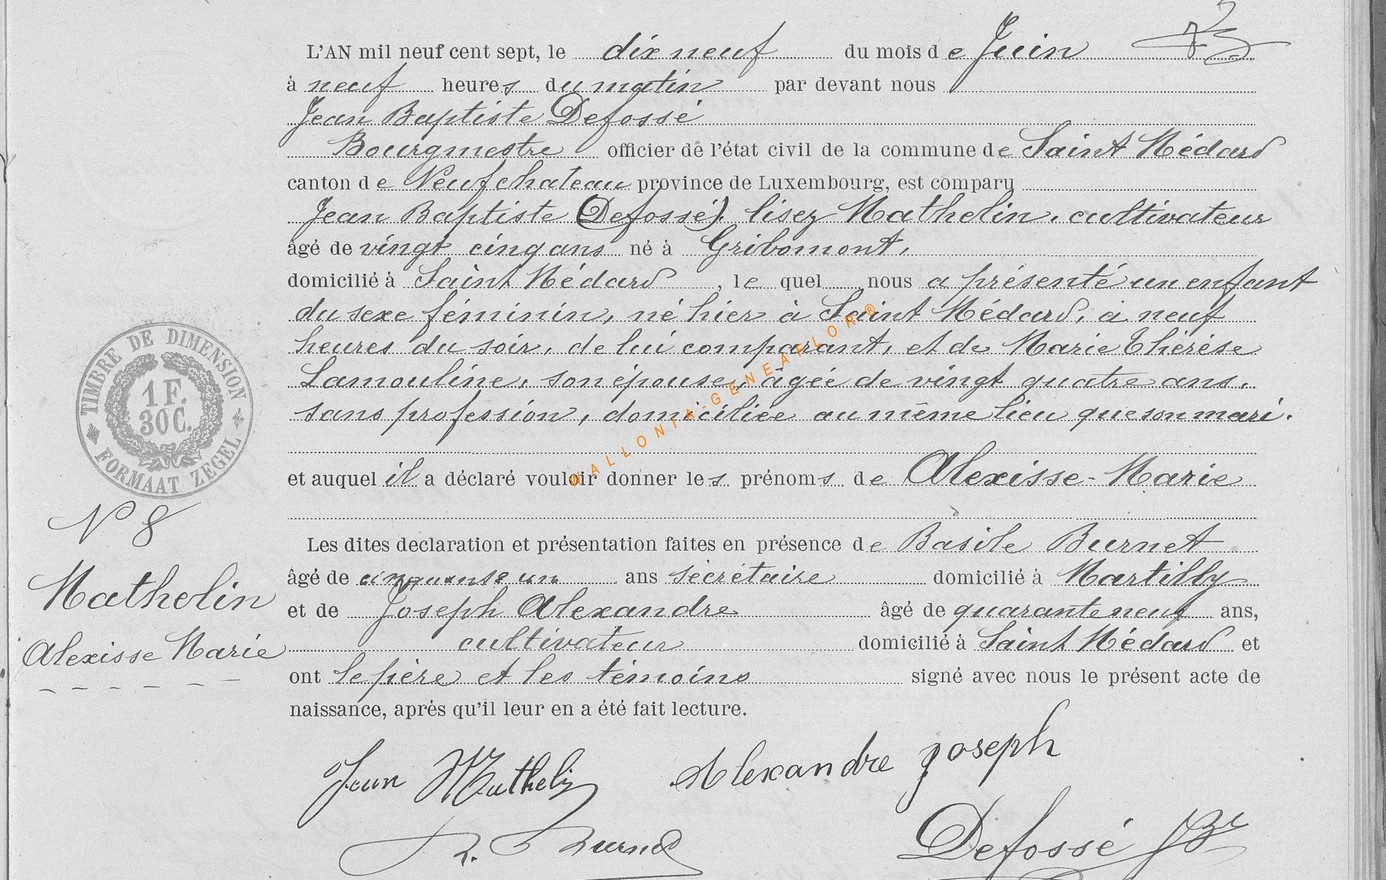 L'AN mil neuf cent sept, le dix neuf du mois de Juin
à neuf heures du matin par devant nous
Jean Baptiste Defossé
Bourgmestre officier de l'état civil de la commune de Saint Médard
canton de Neufchateau province de Luxembourg, est comparu
Jean Baptiste (Defossé) lisez Mathelin, cultivateur
âgé de vingt cinq ans né à Gribomont,
domicilié à Saint Médard, le quel nous a présenté un enfant
du sexe féminin, né hier à Saint Médard, à neuf
heures du soir, de lui comparant, et de Marie Thérèse
Lamouline, son épouse, âgée de vingt quatre ans,
sans profession, domiciliée au même lieu que son mari.
et auquel il a déclaré vouloir donner les prénoms de Alexisse-Marie
Les dites declaration et présentation faites en présence de Basile Burnet
âgé de cinquante un ans secrétaire domicilié à Martilly
et de Joseph Alexandre âgé de quarante neuf ans,
cultivateur domicilié à Saint Médard et
ont le père et les témoins signé avec nous le présent acte de
naissance, après qu'il leur en a été fait lecture.
Jean Mathelin Alexandre joseph
B. Burnet Defossé JBte
TIMBRE DE DIMENSION
1 F.
30 C.
FORMAAT ZEGEL
N 8
Mathelin
Alexisse Marie
WALLONIA-GENEAFLOR®